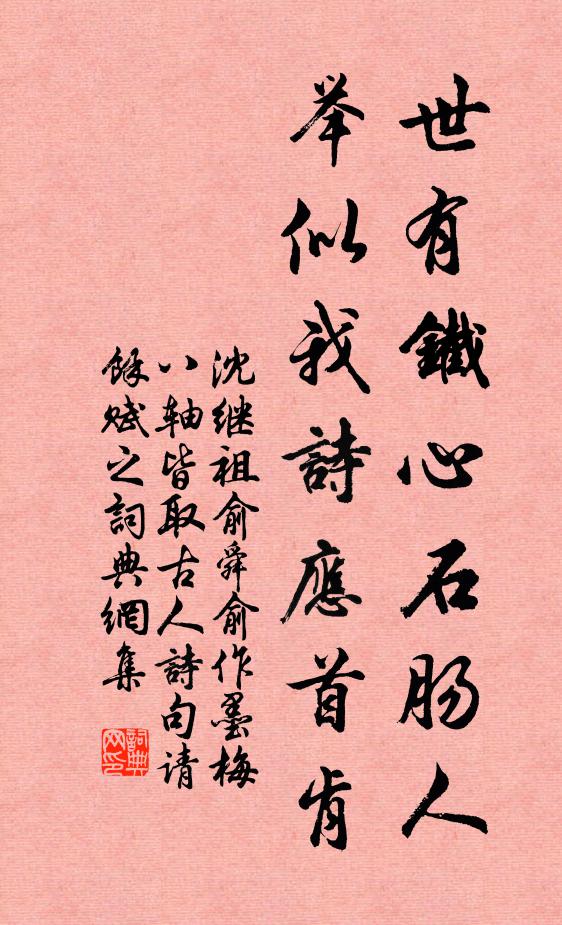 世有鐵心石肠人
举似我詩應首肯
沈继祖俞舜俞作墨梅
八轴皆取古人詩句请
馀赋之詞典網集
詞典网印